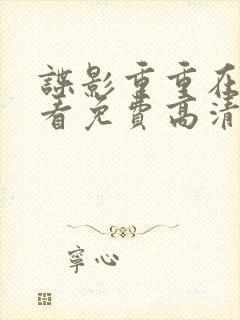 諜影重重在
看免費高清
寧心